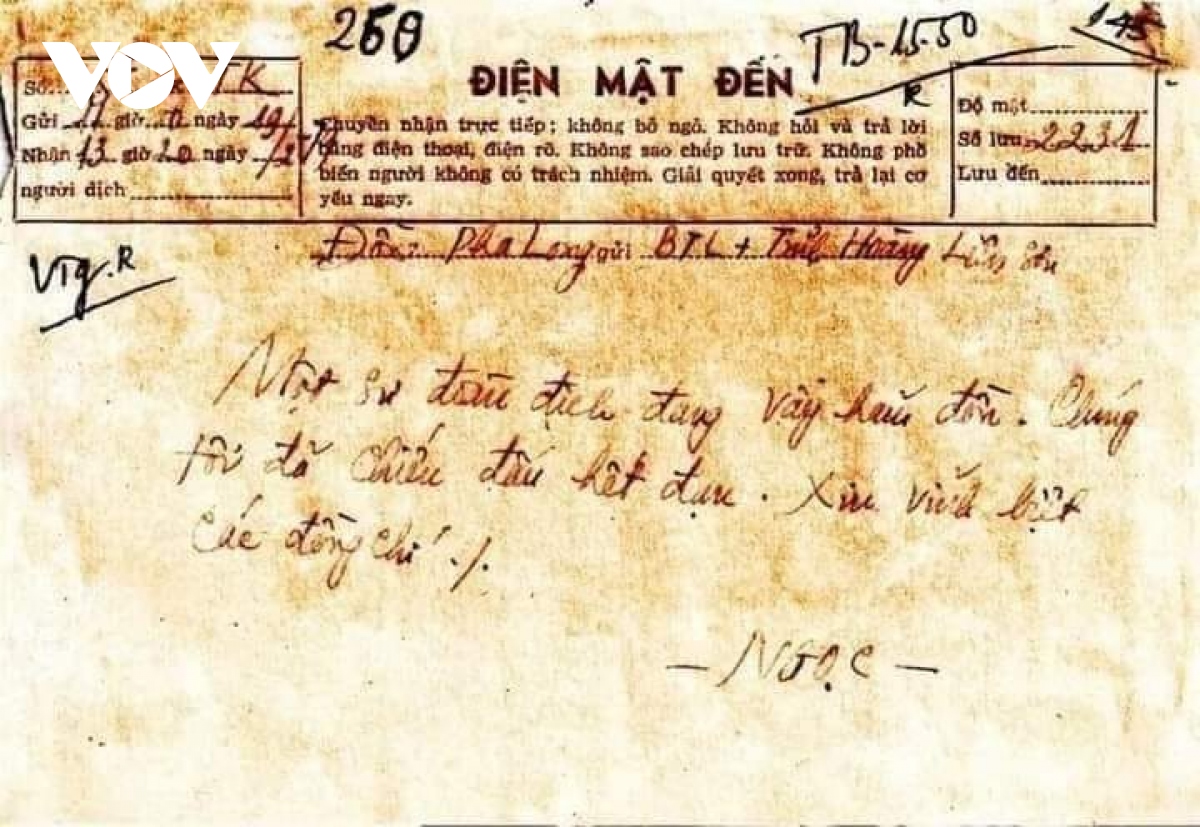 VOV
250
TB-15.50
145
R
ĐIỆN MẬT ĐẾN
Số TK
Gửi giờ ngày 19/
Nhận 13 giờ 20 ngày
người dịch
Chuyển nhận trực tiếp; không bỏ ngỏ. Không hỏi và trả lời
bằng điện thoại, điện rõ. Không sao chép lưu trữ. Không phổ
biến người không có trách nhiệm. Giải quyết xong, trả lại cơ
yếu ngay.
Độ mật
Số lưu 2231
Lưu đến
Đồn: Pha Long gửi BTL + Tỉnh Hoàng Liên Sơn
VTg. R
Một sư đoàn địch đang vây hãm đồn. Chúng
tôi đã chiến đấu hết đạn. Xin vĩnh biệt
các đồng chí ./.
- NGỌC -